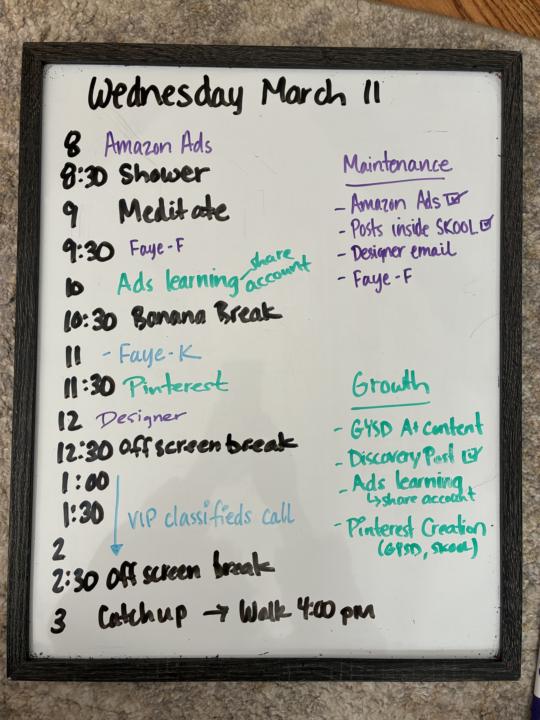 Wednesday March 11
8 Amazon Ads
8:30 Shower
9 Meditate
9:30 Faye-F
10 Ads learning share account
10:30 Banana Break
11 - Faye-K
11:30 Pinterest
12 Designer
12:30 off screen break
1:00
1:30 VIP classifieds call
2
2:30 off screen break
3 Catchup → Walk 4:00 pm
Maintenance
- Amazon Ads ☑
- Posts inside SKOOL ☑
- Designer email
- Faye-F
Growth
- GYSD A+ content
- Discovery Post ☑
- Ads learning
↳ share account
- Pinterest Creation
(GYSD, Skool)